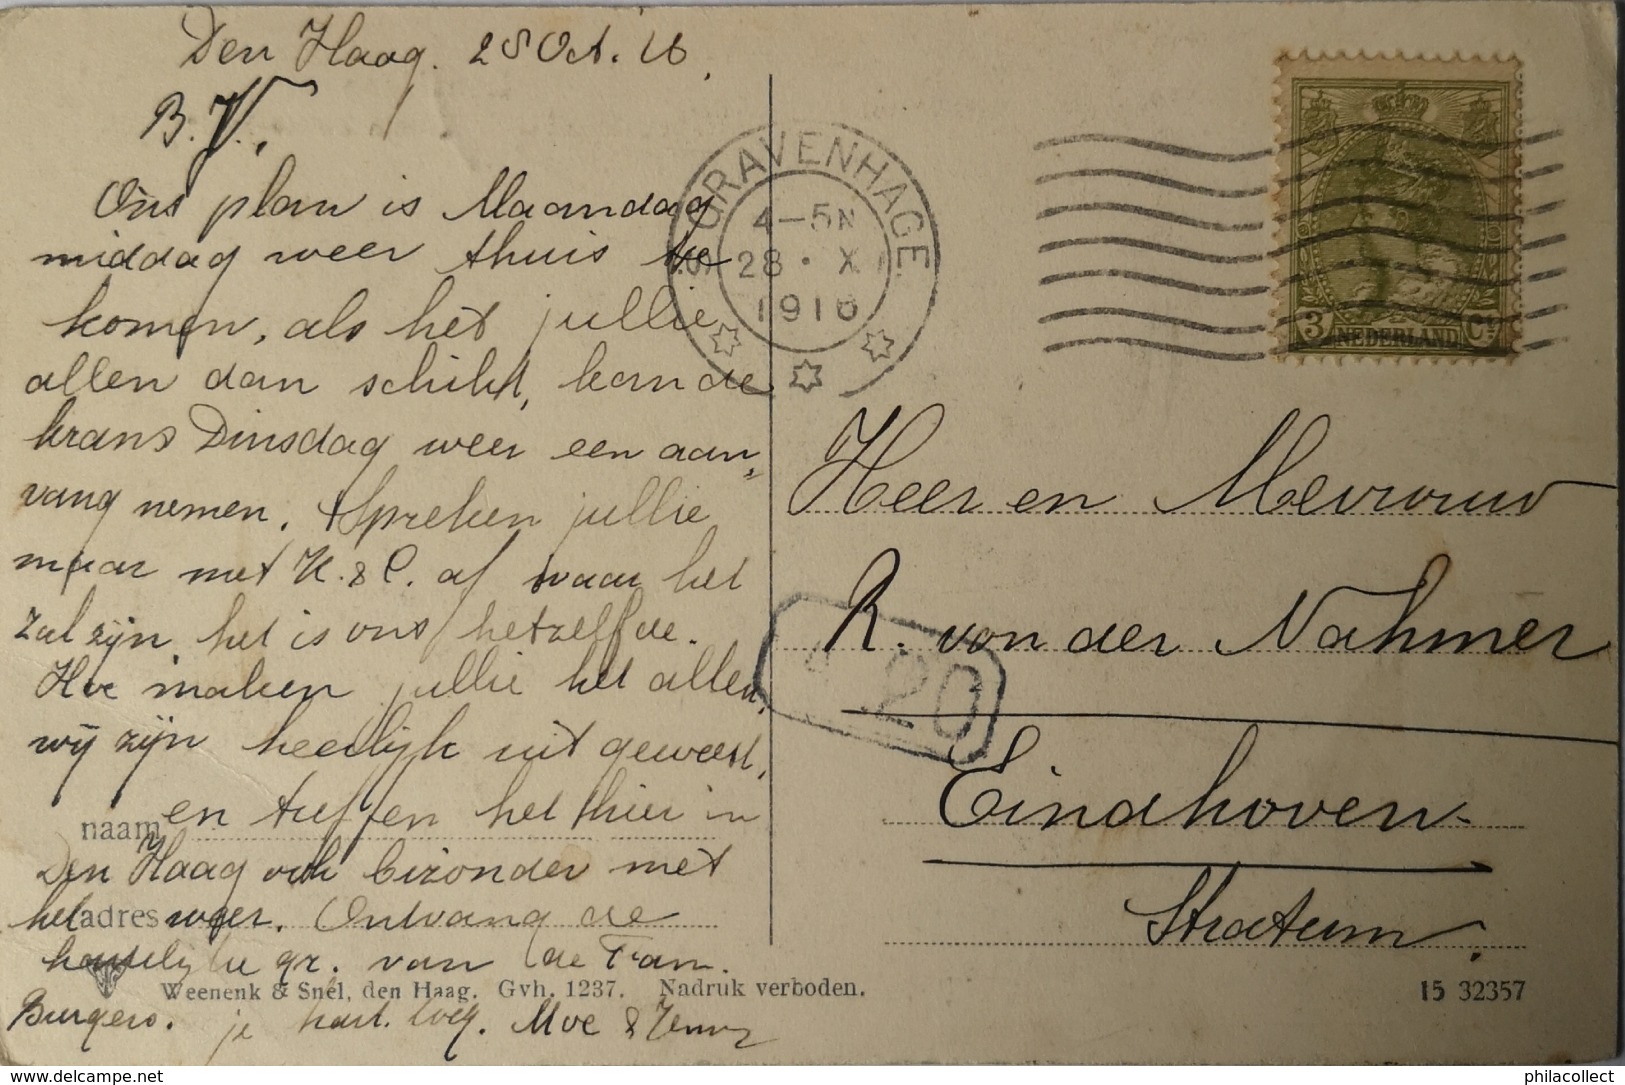 Den Haag. 28 Oct. 16.
B.V.,
Ons plan is Maandag
middag weer thuis te
komen, als het jullie
allen dan schikt, kan de
krans Dinsdag weer een aan-
vang nemen. Spreken jullie
maar met K. & C. af waar het
zal zijn, het is ons hetzelfde.
Hoe maken jullie het allen,
wij zijn heerlijk uit geweest,
en treffen het hier in
Den Haag ook bizonder met
het weer. Ontvang de
hartelijke gr. van de Fam.
Burgers. je hart. toeg. Moe &
naam
adres
Weenenk & Snel, den Haag. Gvh. 1237. Nadruk verboden.
15 32357
'S GRAVENHAGE
4-5N
28 . X
1916
3 NEDERLAND Ct
20
Heer en Mevrouw
R. von der Nahmer
Eindhoven.
Stratum.
philacollect